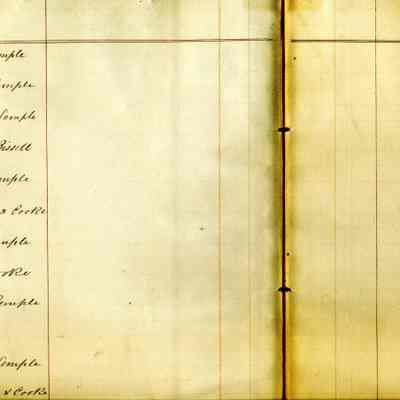 emple
emple
Semple
Bissell
emple
& Cooke
emple
ooke
Semple
Semple
& Cooke